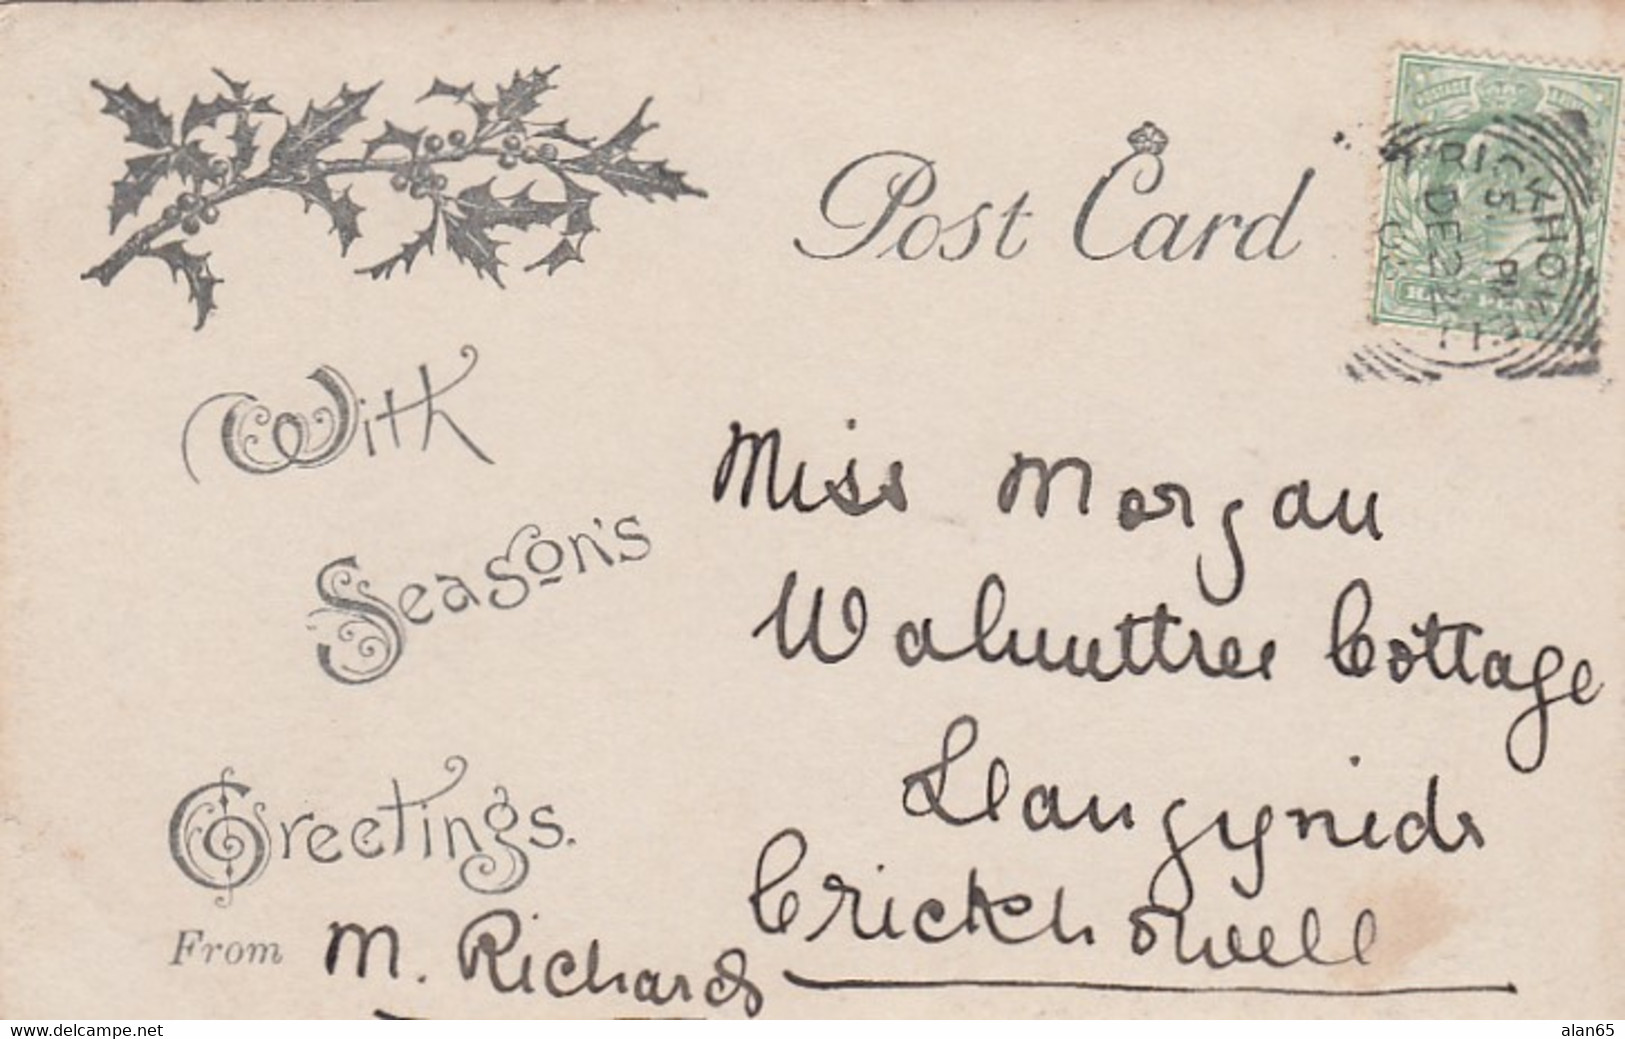 Post Card
With
Season's
Greetings.
From M. Richards
Miss Morgan
Walnuttree Cottage
Llangynidr
Crickhowell
POSTAGE
CRICKHOWELL
5 PM
DE 22
www.delcampe.net
alan65